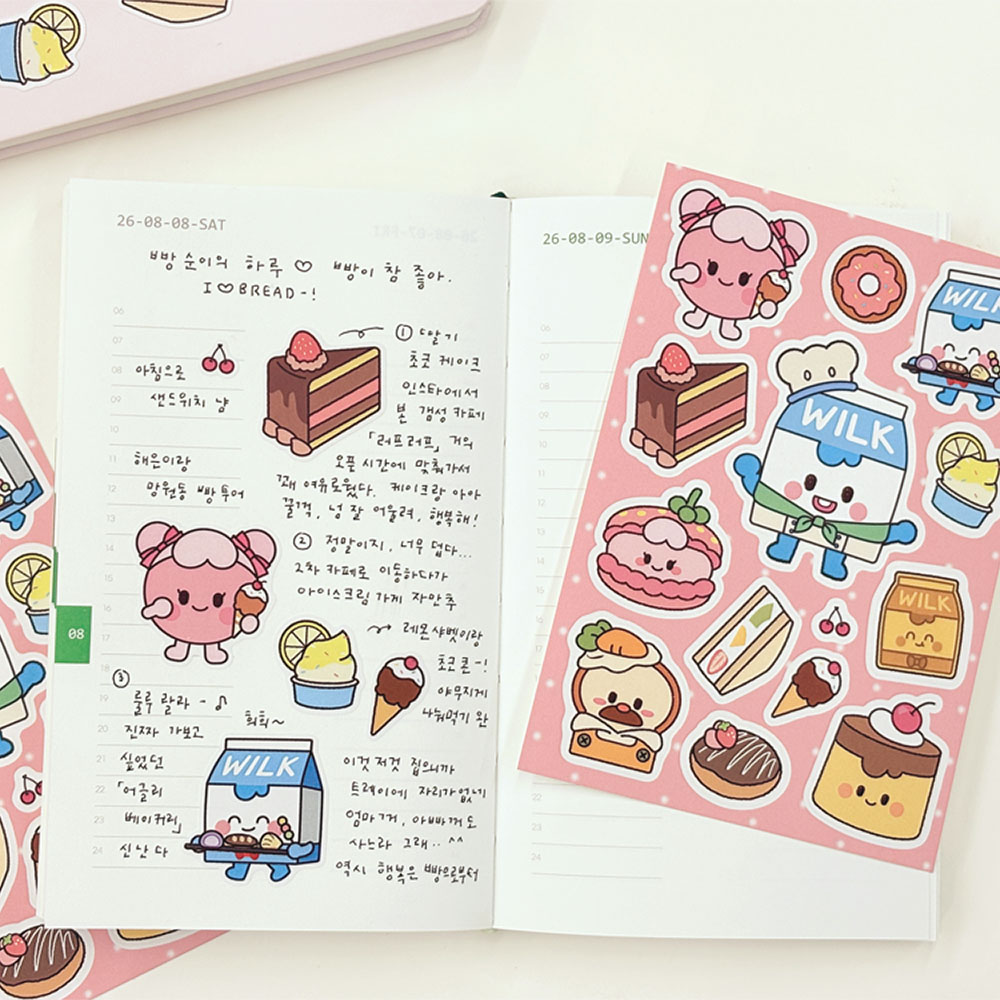 26-08-08-SAT
빵순이의 하루 ♡ 빵이 참 좋아.
I ♡ BREAD-!
06
07
08
09
10
11
12
13
14
15
18
19
20
21
22
23
24
아침으로
샌드위치 냠
해은이랑
망원동 빵투어
① 딸기
초코 케이크
인스타에서
본 갬성 카페
「러프러프」 거의
오픈 시간에 맞춰가서
꽤 여유로웠다. 케이크랑 아아
꿀꺽, 넘 잘 어울려, 행복해!
② 정말이지, 너무 덥다...
2차 카페로 이동하다가
아이스크림 가게 자만추
레몬 샤벳이랑
초코콘-!
야무지게
나눠먹기 완
③
룰루 랄라 - ♪
진짜 가보고
싶었던
「어글리
베이커리」
신난다
희희~
이것 저것 집으니까
트레이에 자리가 없네
엄마꺼, 아빠꺼도
사느라 그래.. ^^
역시 행복은 빵으로부터
WILK
08
26-08-09-SUN
06
07
08
09
10
11
12
13
14
15
22
23
24
WILK
WILK
WILK